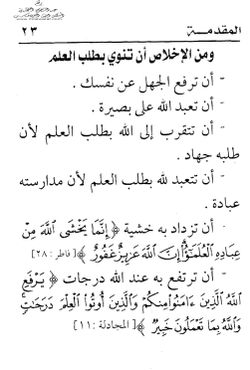 المقدمـــة ٢٣
ومن الإخلاص أن تنوي بطلب العلم
- أن ترفع الجهل عن نفسك .
- أن تعبد الله على بصيرة .
- أن تتقرب إلى الله بطلب العلم لأن
طلبه جهاد .
- أن تتعبد لله بطلب العلم لأن مدارسته
عبادة .
- أن تزداد به خشية ﴿ إِنَّمَا يَخْشَى اللَّهَ مِنْ
عِبَادِهِ الْعُلَمَٰٓؤُا۟ إِنَّ اللَّهَ عَزِيزٌ غَفُورٌ ﴾ [ فاطر : ٢٨ ]
- أن ترتفع به عند الله درجات ﴿ يَرْفَعِ
اللَّهُ الَّذِينَ ءَامَنُوا مِنكُمْ وَالَّذِينَ أُوتُوا الْعِلْمَ دَرَجَٰتٍ
وَاللَّهُ بِمَا تَعْمَلُونَ خَبِيرٌ ﴾ [ المجادلة : ١١ ]